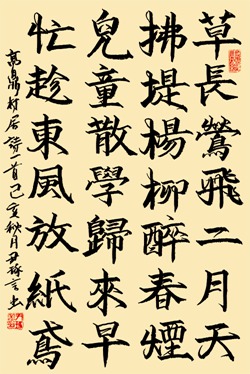 草長鶯飛二月天
拂堤楊柳醉春煙
兒童散學歸來早
忙趁東風放紙鳶
高鼎村居詩一首己亥秋月尹